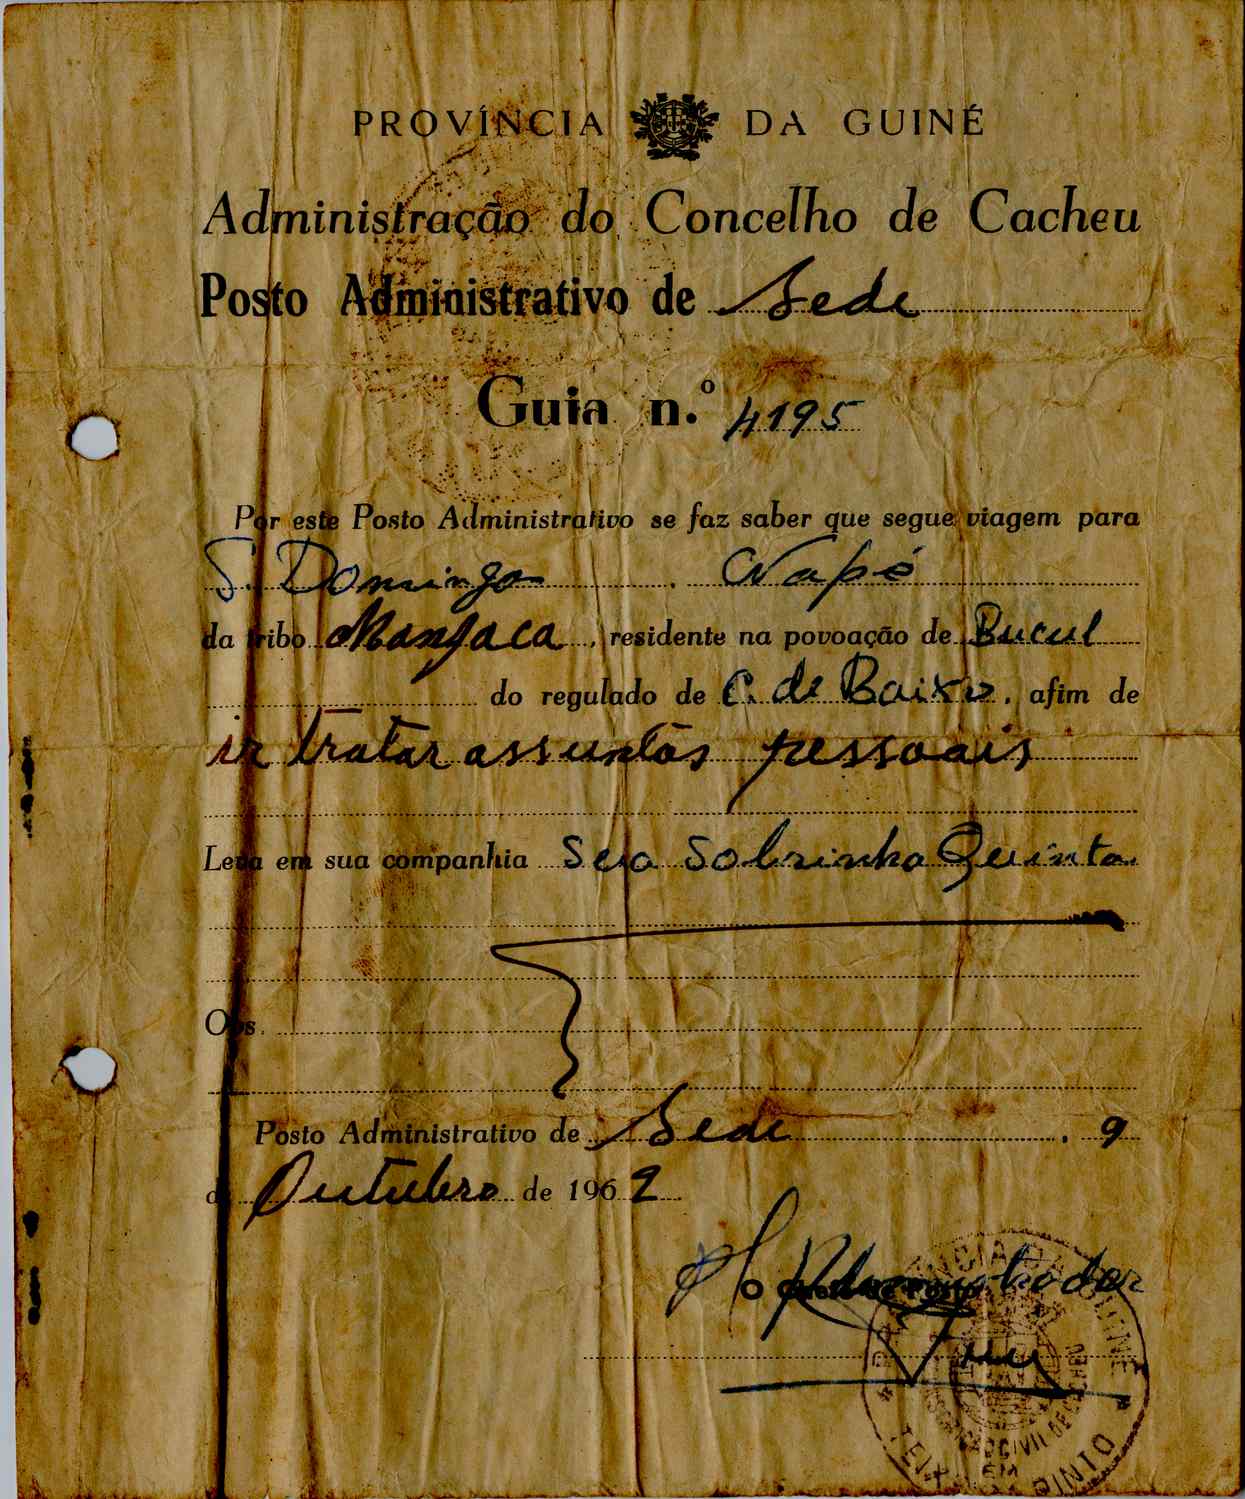 PROVÍNCIA DA GUINÉ
Administração do Concelho de Cacheu
Posto Administrativo de Sede
Guia n.º 4195
Por este Posto Administrativo se faz saber que segue viagem para
S. Domingos, Napó
da tribo Manjaca, residente na povoação de Bucul
do regulado de C. de Baixo, afim de
ir tratar assuntos pessoais
Leva em sua companhia sua sobrinha Quinta
Obs.
Posto Administrativo de Sede, 9
de Outubro de 1962
O Administrador
PROVÍNCIA DA GUINÉ
CIVIL DE CACHEU
EM
TEIX PINTO